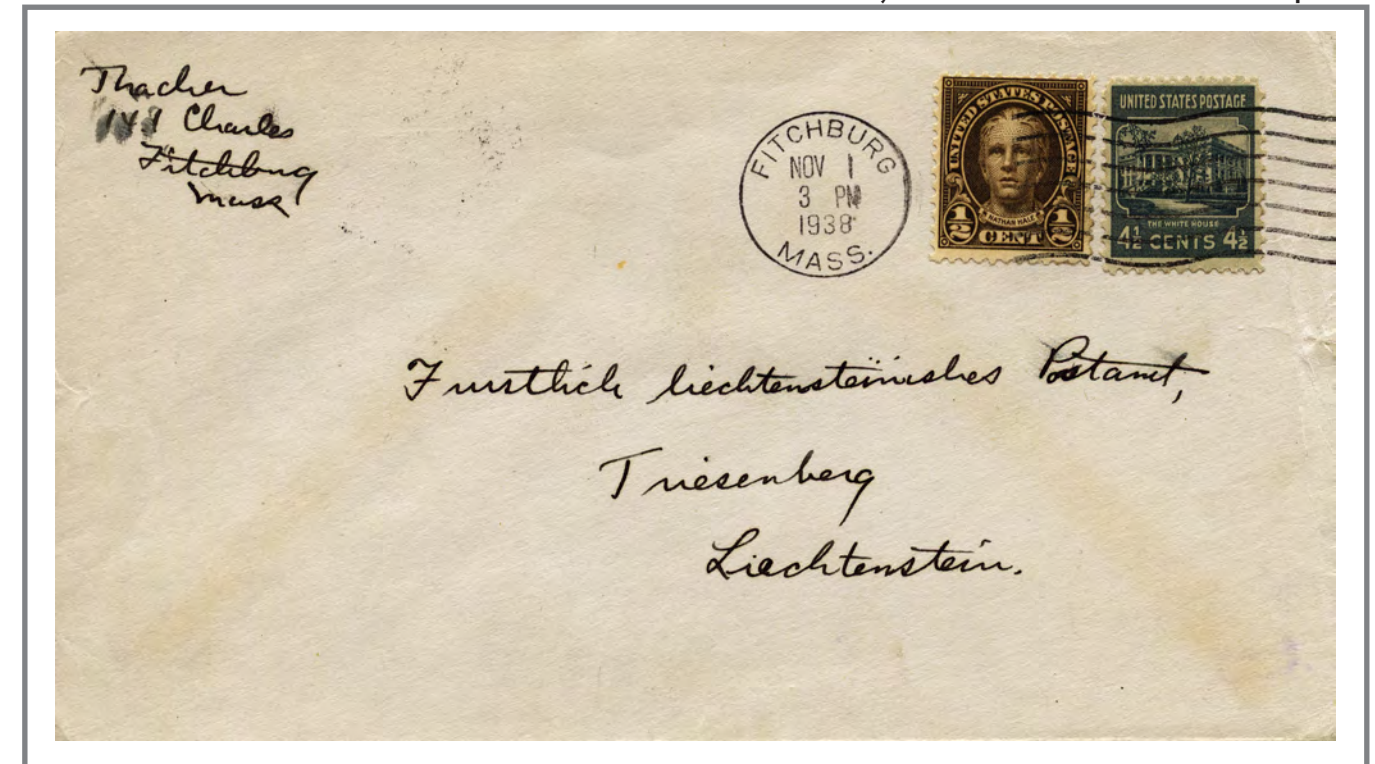 Thacher
Charles
Fitchburg
Mass
FITCHBURG
NOV 1
3 PM
1938
MASS.
UNITED STATES POSTAGE
NATHAN HALE
1/2 CENT 1/2
UNITED STATES POSTAGE
THE WHITE HOUSE
4 1/2 CENTS 4 1/2
Furstlich liechtensteinisches Postamt,
Triesenberg
Liechtenstein.